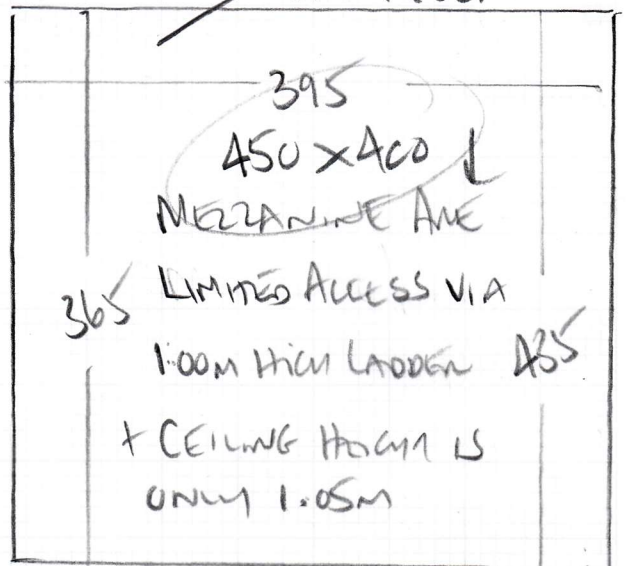 395
450 x 400 ↓
MEZZANINE ARE
365 LIMITED ACCESS VIA
1.00M HIGH LADDER 435
+ CEILING HEIGHT IS
ONLY 1.05M